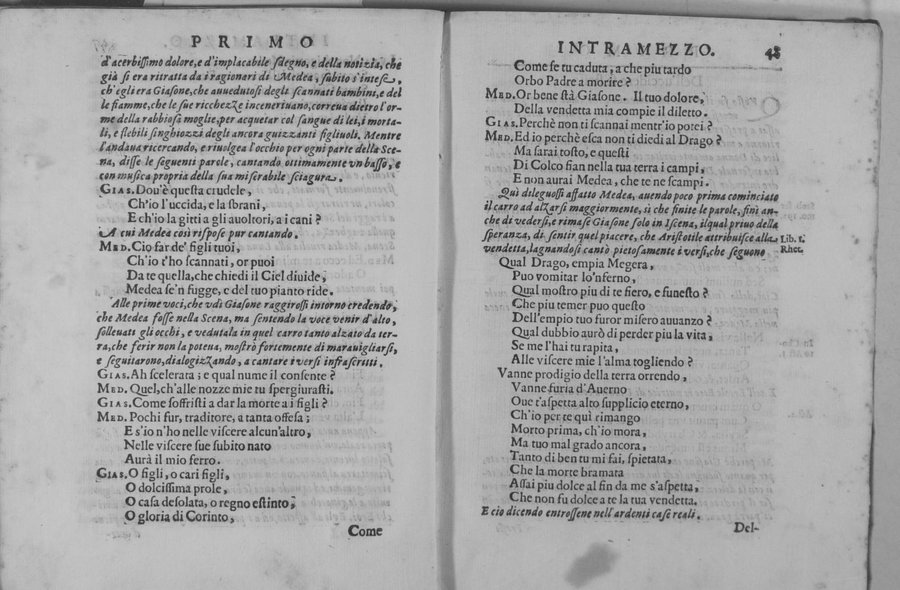 PRIMO
d'acerbissimo dolore, e d'implacabile sdegno, e della notizia, che
già si era ritratta da i ragionari di Medea, subito s'intese,
ch'egli era Giasone, che auuedutosi degli scannati bambini, e del
le fiamme, che le sue ricchezze inceneriuano, correua dietro l'or-
me della rabbiosa moglie, per acquetar col sangue di lei, i morta-
li, e flebili singhiozzi degli ancora guizzanti figliuoli. Mentre
l'andaua ricercando, e riuolgea l'occhio per ogni parte della Sce-
na, disse le seguenti parole, cantando ottimamente vn basso, e
con musica propria della sua miserabile sciagura.
GIAS. Dou'è questa crudele,
Ch'io l'uccida, e la sbrani,
E ch'io la gitti a gli auoltori, a i cani?
A cui Medea così rispose pur cantando.
MED. Cio far de' figli tuoi,
Ch'io t'ho scannati, or puoi
Da te quella, che chiedi il Ciel diuide,
Medea se'n fugge, e del tuo pianto ride.
Alle prime voci, che vdì Giasone raggirossi intorno credendo,
che Medea fosse nella Scena, ma sentendo la voce venir d'alto,
solleuati gli occhi, e vedutala in quel carro tanto alzato da ter-
ra, che ferir non la poteua, mostrò fortemente di marauigliarsi,
e seguitarono, dialogizzando, a cantare i versi infrascritti.
GIAS. Ah scelerata; e qual nume il consente?
MED. Quel, ch'alle nozze mie tu spergiurasti.
GIAS. Come soffristi a dar la morte a i figli?
MED. Pochi fur, traditore, a tanta offesa;
E s'io n'ho nelle viscere alcun'altro,
Nelle viscere sue subito nato
Aurà il mio ferro.
GIAS. O figli, o cari figli,
O dolcissima prole,
O casa desolata, o regno estinto,
O gloria di Corinto,
Come
INTRAMEZZO. 48
Come se tu caduta, a che piu tardo
Orbo Padre a morire?
MED. Or bene stà Giasone. Il tuo dolore,
Della vendetta mia compie il diletto.
GIAS. Perchè non ti scannai mentr'io potei?
MED. Ed io perchè esca non ti diedi al Drago?
Ma sarai tosto, e questi
Di Colco sian nella tua terra i campi,
E non aurai Medea, che te ne scampi.
Quì dileguossi affatto Medea, auendo poco prima cominciato
il carro ad alzarsi maggiormente, sì che finite le parole, finì an-
che di vedersi, e rimase Giasone solo in Iscena, il qual priuo della
speranza, di sentir quel piacere, che Aristotile attribuisce alla
vendetta, lagnandosi cantò pietosamente i versi, che seguono
Lib. 1.
Rhet.
Qual Drago, empia Megera,
Puo vomitar lo'nferno,
Qual mostro piu di te fiero, e funesto?
Che piu temer puo questo
Dell'empio tuo furor misero auuanzo?
Qual dubbio aurò di perder piu la vita,
Se me l'hai tu rapita,
Alle viscere mie l'alma togliendo?
Vanne prodigio della terra orrendo,
Vanne furia d'Auerno
Oue t'aspetta alto supplicio eterno,
Ch'io per te quì rimango
Morto prima, ch'io mora,
Ma tuo mal grado ancora,
Tanto di ben tu mi fai, spietata,
Che la morte bramata
Assai piu dolce al fin da me s'aspetta,
Che non fu dolce a te la tua vendetta.
E cio dicendo entrossene nell'ardenti case reali.
Del-